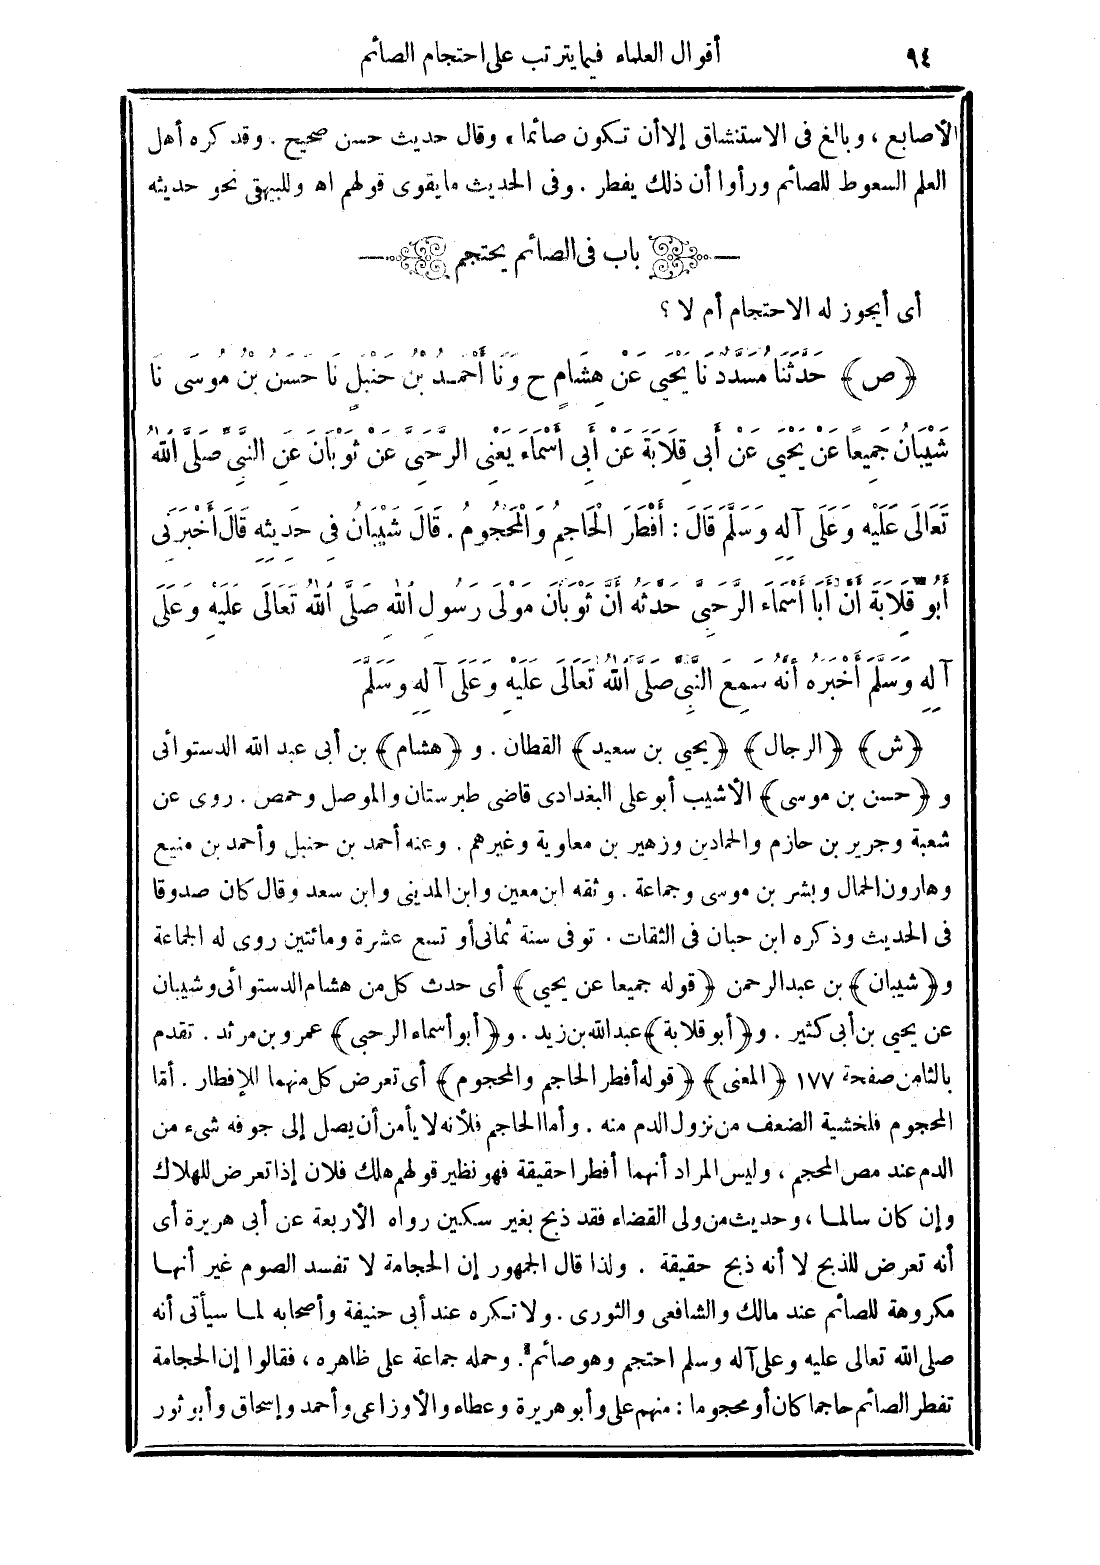 ٩٤
أقوال العلماء فيما يترتب على احتجام الصائم
الأصابع ، وبالغ فى الاستنشاق إلا أن تكون صائما » وقال حديث حسن صحيح . وقد كره أهل
العلم السعوط للصائم ورأوا أن ذلك يفطر . وفى الحديث ما يقوى قولهم اه وللبيهقى نحو حديثه
باب فى الصائم يحتجم
أى أيجوز له الاحتجام أم لا ؟
﴿ص﴾ حَدَّثَنَا مُسَدَّدٌ نَا يَحْيَى عَنْ هِشَامٍ ح وَنَا أَحْمَدُ بْنُ حَنْبَلٍ نَا حَسَنُ بْنُ مُوسَى نَا
شَيْبَانُ جَمِيعًا عَنْ يَحْيَى عَنْ أَبِى قِلَابَةَ عَنْ أَبِى أَسْمَاءَ يَعْنِى الرَّحَبِىَّ عَنْ ثَوْبَانَ عَنِ النَّبِىِّ صَلَّى اللهُ
تَعَالَى عَلَيْهِ وَعَلَى آلِهِ وَسَلَّمَ قَالَ : أَفْطَرَ الْحَاجِمُ وَالْمَحْجُومُ . قَالَ شَيْبَانُ فِى حَدِيثِهِ قَالَ أَخْبَرَنِى
أَبُو قِلَابَةَ أَنَّ أَبَا أَسْمَاءَ الرَّحَبِىَّ حَدَّثَهُ أَنَّ ثَوْبَانَ مَوْلَى رَسُولِ اللهِ صَلَّى اللهُ تَعَالَى عَلَيْهِ وَعَلَى
آلِهِ وَسَلَّمَ أَخْبَرَهُ أَنَّهُ سَمِعَ النَّبِىَّ صَلَّى اللهُ تَعَالَى عَلَيْهِ وَعَلَى آلِهِ وَسَلَّمَ
﴿ش﴾ ﴿الرجال﴾ ﴿يحيى بن سعيد﴾ القطان . و ﴿هشام﴾ بن أبى عبد الله الدستوائى
و ﴿حسن بن موسى﴾ الأشيب أبو على البغدادى قاضى طبرستان والموصل وحمص . روى عن
شعبة وجرير بن حازم والحمادين وزهير بن معاوية وغيرهم . وعنه أحمد بن حنبل وأحمد بن منيع
وهارون الحمال وبشر بن موسى وجماعة . وثقه ابن معين وابن المدينى وابن سعد وقال كان صدوقا
فى الحديث وذكره ابن حبان فى الثقات . توفى سنة ثمانى أو تسع عشرة ومائتين روى له الجماعة
و﴿شيبان﴾ بن عبد الرحمن ﴿قوله جميعا عن يحيى﴾ أى حدث كل من هشام الدستوائى وشيبان
عن يحيى بن أبى كثير . و﴿أبو قلابة﴾ عبد الله بن زيد . و﴿أبو أسماء الرحبى﴾ عمرو بن مرثد . تقدم
بالثامن صفحة ١٧٧ ﴿المعنى﴾ ﴿قوله أفطر الحاجم والمحجوم﴾ أى تعرض كل منهما للإفطار . أمّا
المحجوم فلخشية الضعف من نزول الدم منه . وأما الحاجم فلأنه لا يأمن أن يصل إلى جوفه شىء من
الدم عند مص المحجم ، وليس المراد أنهما أفطرا حقيقة فهو نظير قولهم هلك فلان إذا تعرض للهلاك
وإن كان سالما ، وحديث من ولى القضاء فقد ذبح بغير سكين رواه الأربعة عن أبى هريرة أى
أنه تعرض للذبح لا أنه ذبح حقيقة . ولذا قال الجمهور إن الحجامة لا تفسد الصوم غير أنها
مكروهة للصائم عند مالك والشافعى والثورى . ولا تكره عند أبى حنيفة وأصحابه لما سيأتى أنه
صلى الله تعالى عليه وعلى آله وسلم احتجم وهو صائم . وحمله جماعة على ظاهره ، فقالوا إن الحجامة
تفطر الصائم حاجما كان أو محجوما : منهم على وأبو هريرة وعطاء والأوزاعى وأحمد وإسحاق وأبو ثور